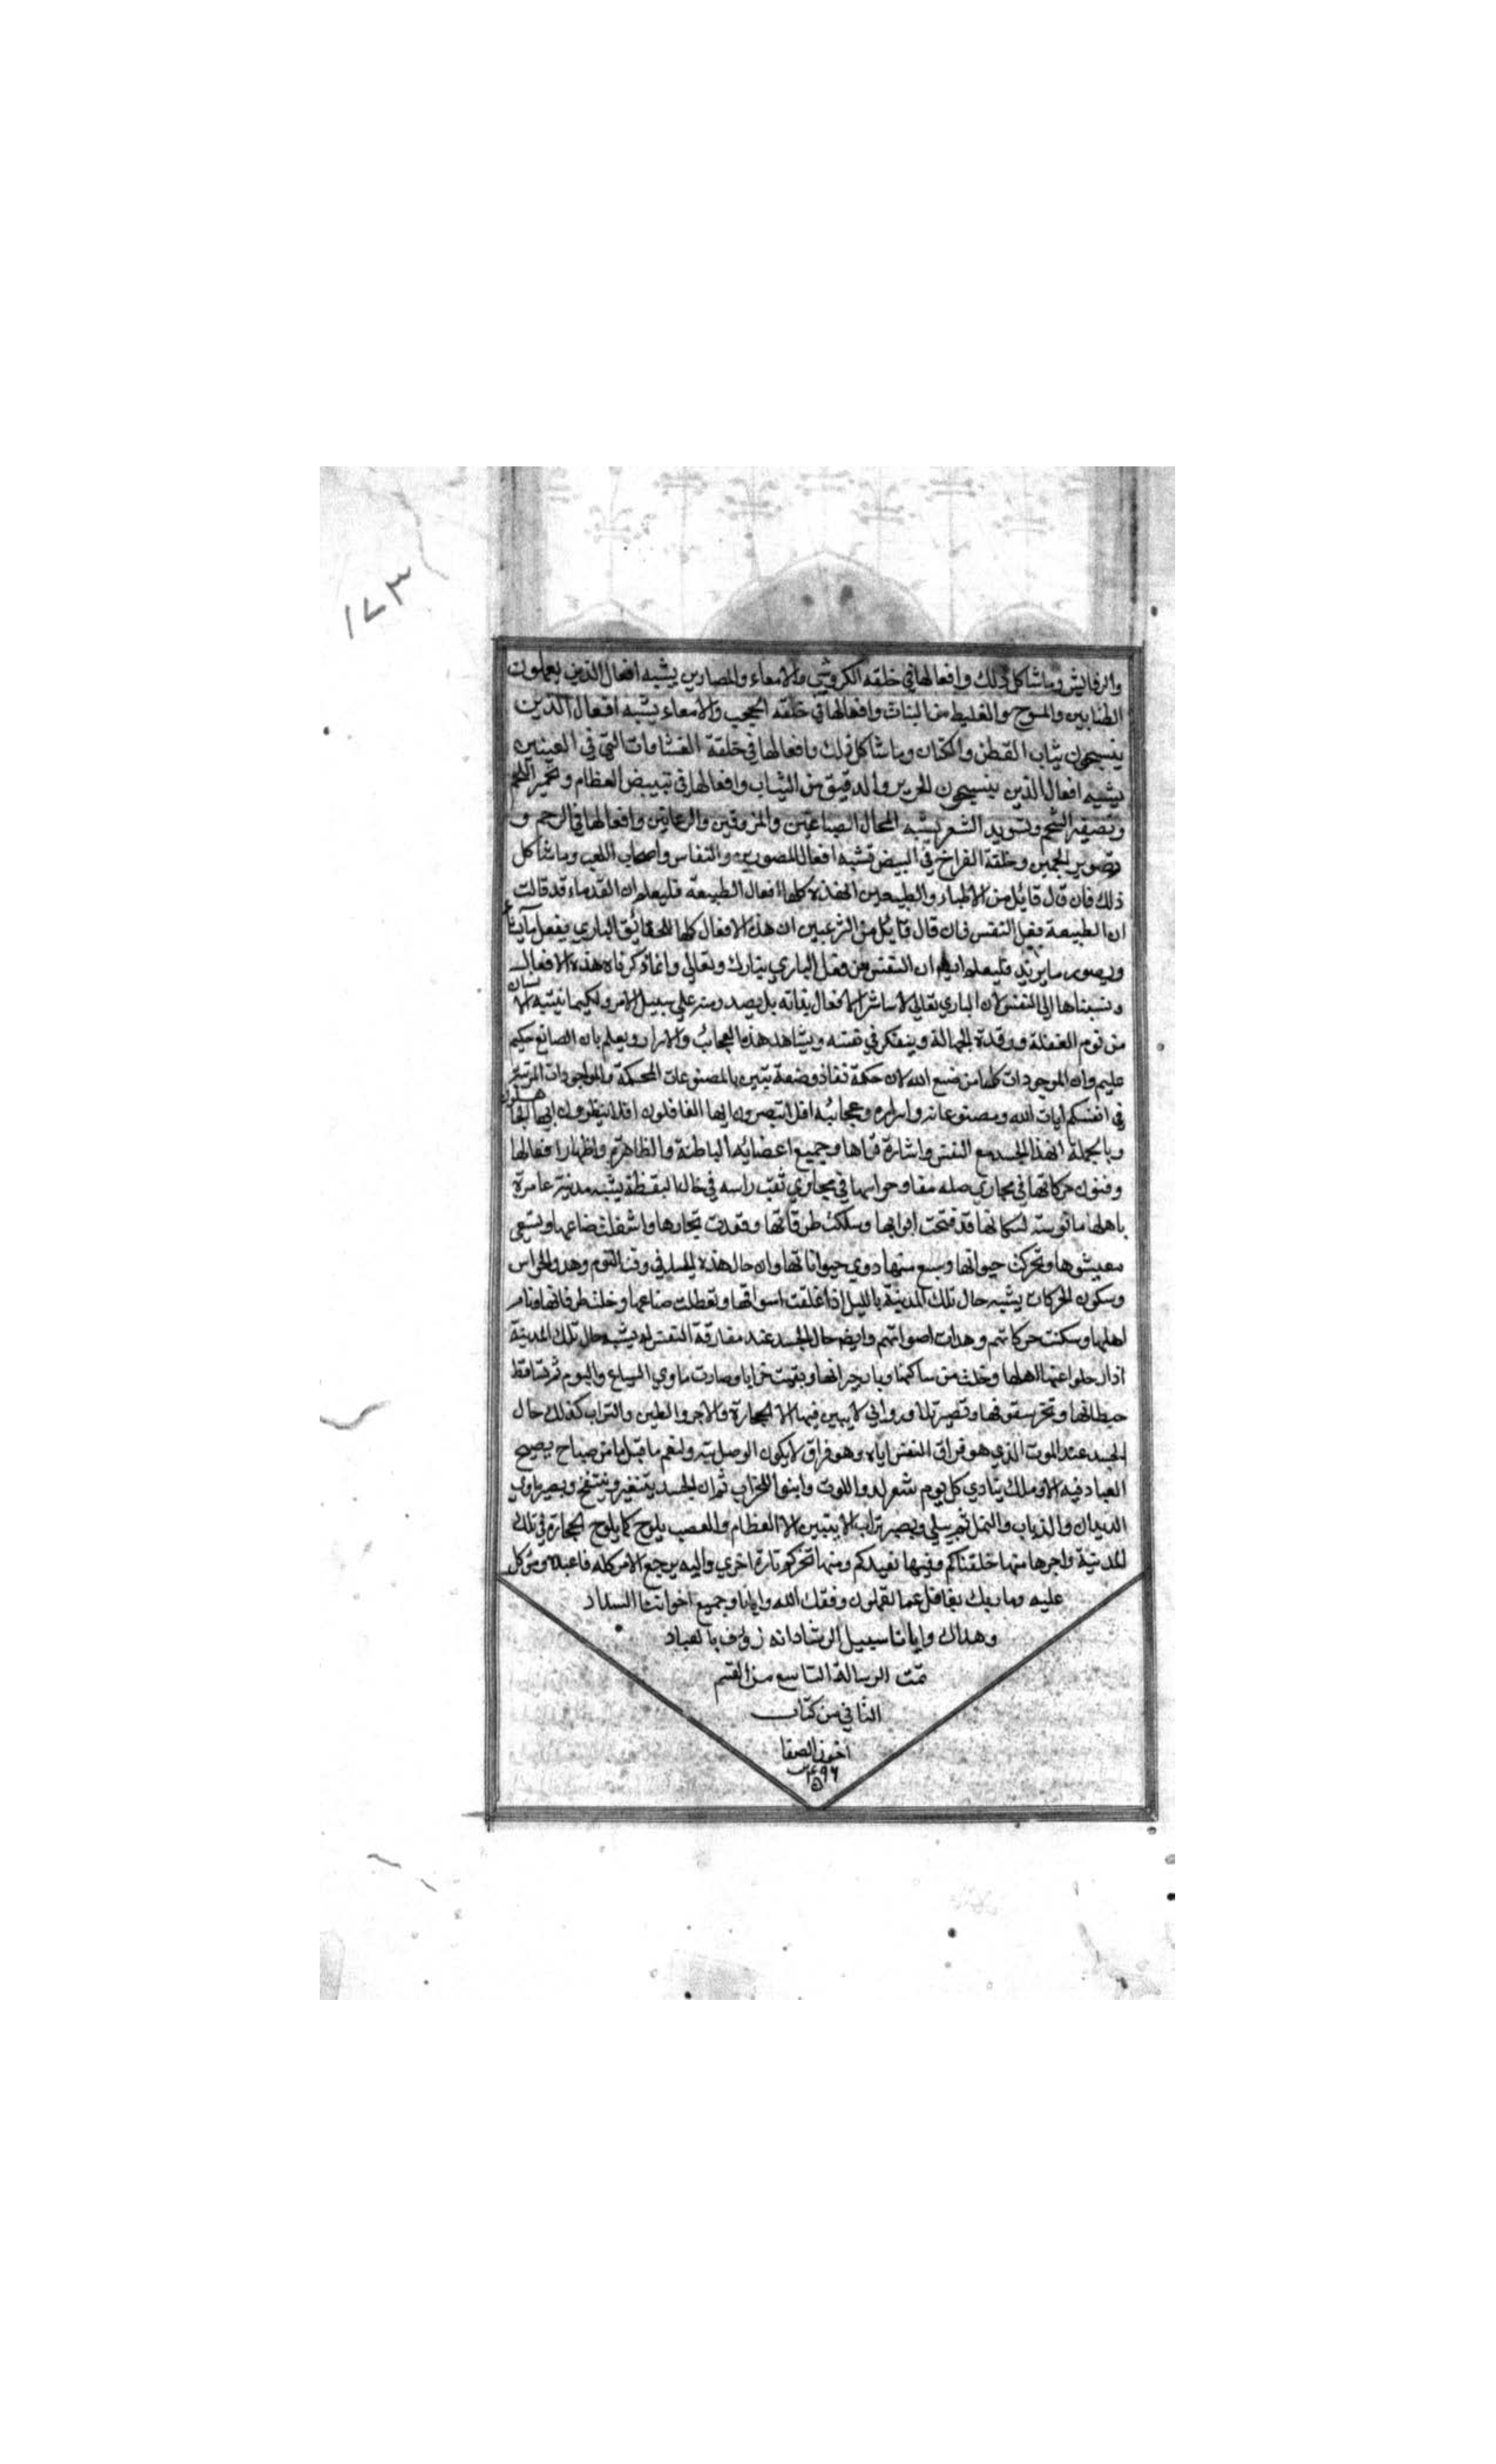 ١٧٣
والرفايش وما شاكل ذلك وافعالها في خلقه الكروش والامعاء والمصارين يشبه افعال الذين يعملون
الطنابين والمسوح والغليظ من البنات وافعالها في خلقه الحجب والامعاء يشبه افعال الذين
ينسجون ثياب القطن والكتان وما شاكل ذلك وافعالها في خلقة الغشاوات التي في العينين
يشبه افعال الذين ينسجون الحرير والدقيق من الثياب وافعالها في تبييض العظام وتحمير اللحم
وتصفير الشحم وتسويد الشعر يشبه الصباغين والمزوقين وافعالها في الرحم و
تصوير الجنين وخلقة الفراخ في البيض تشبه افعال المصورين والنقاس واصحاب اللعب وما شاكل
ذلك فان قال قايل من الاطباء والطبيعين ان هذه كلها افعال الطبيعة فليعلم ان القدماء قد قالت
ان الطبيعة فعل النفس فان قال قايل من الشرعيين ان هذه الافعال كلها الباري يفعل ما يشاء
ويصور ما يريد فليعلم ان النفس من فعل الباري تبارك وتعالي وانما ذكرناه هذه الافعال
ونسبناها الي النفس لان الباري تعالي لا يباشر الافعال بذاته بل يصدر منه علي سبيل الامر ولكيما ينتبه الانسان
من نوم الغفلة ورقدة الجهالة ويتفكر في نفسه ويشاهد هذه العجائب والاسرار ويعلم بان الصانع حكيم
عليم وان الموجودات كلها من صنع الله لان حكمة تتبين بالمصنوعات المحكمة والموجودات
في انفسكم ايات الله ومصنوعاته واسراره وعجائبه افلا تبصرون ايها الغافلون افلا ينظرون ايها الجاهلون
وبالجملة ان هذا الجسد مع النفس واشارة قواها وجميع اعضائه الباطنة والظاهرة واظهار افعالها
وفنون حركاتها في مجاري مفاصله وحواسها في مجاري ثقب راسه في حال اليقظة يشبه مدينة عامرة
باهلها مانوسة لسكانها قد فتحت ابوابها وسلكت طرقاتها وقعدت تجارها واشغلت صناعها وتسعي
معيشوها وتحركت حيوانها وسمع منها دوي حيواناتها وان حال هذه الجسد في وقت النوم وهدو الحواس
وسكون الحركات يشبه حال تلك المدينة بالليل اذا غلقت اسواقها وتعطلت صناعها وخلت طرقاتها ونام
اهلها وسكنت حركاتهم وهدات اصواتهم وايضا حال الجسد عند مفارقة النفس له يشبه حال تلك المدينة
اذا رحلوا عنها اهلها وخلت من ساكنها وباد جيرانها وبقيت خرابا وصارت ماوي السباع والبوم ثم تساقط
حيطانها وتخر سقوفها وتصير تلالا وروابي لا يبين فيها الا الحجارة والاجر والطين والتراب كذلك حال
الجسد عند الموت الذي هو فراق النفس اياه وهو فراق لا يكون الوصل بته ولنعم ما قيل ما من صباح يصبح
العباد فيه الا وملك ينادي كل يوم شعر لدوا للموت وابنوا للخراب ثم ان الجسد يتغير وينتفخ ويصير ماوي
الديدان والذباب والنمل ثم يبلي ويصير تراب لا يتبين الا العظام والعصب يلوح كما يلوح الحجارة في تلك
المدينة واجرها منها خلقناكم وفيها نعيدكم ومنها نخرجكم تارة اخري واليه يرجع الامر كله فاعبده وتوكل
عليه وما ربك بغافل عما تعملون وفقك الله وايانا وجميع اخواننا السداد
وهداك وايانا سبيل الرشاد انه رؤف بالعباد
تمت الرسالة التاسع من القسم
الثاني من كتاب
اخون الصفا